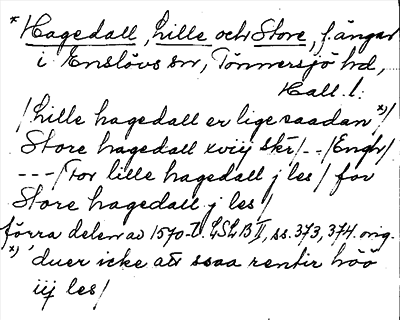 * Hagedall, Lille och Store, f. ängar
i Enslövs sn, Tönnersjö hd,
Hall. l:
/Lille hagedall er lige saadan *)/
Store hagedall xviij skr/ -- /Enghr/
--- /For lille hagedall j les/ for
Store hagedall j les/
förra delen av 1570-t. LSLB II, ss. 373, 374. orig.
*) 'duer icke att saa rentir höö
iij les/